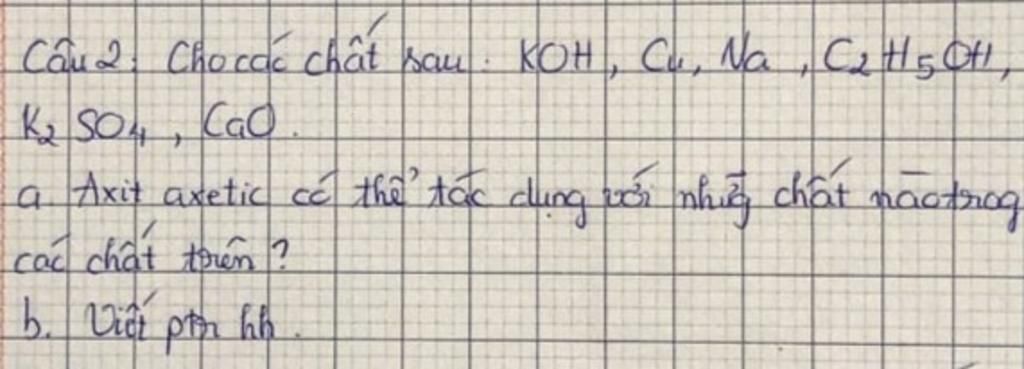 Câu 2: Cho các chất sau: KOH, Cu, Na, C2H5OH,
K2SO4, CaO.
a. Axit axetic có thể tác dụng với những chất nào trog
các chất trên?
b. Viết ptr hh.